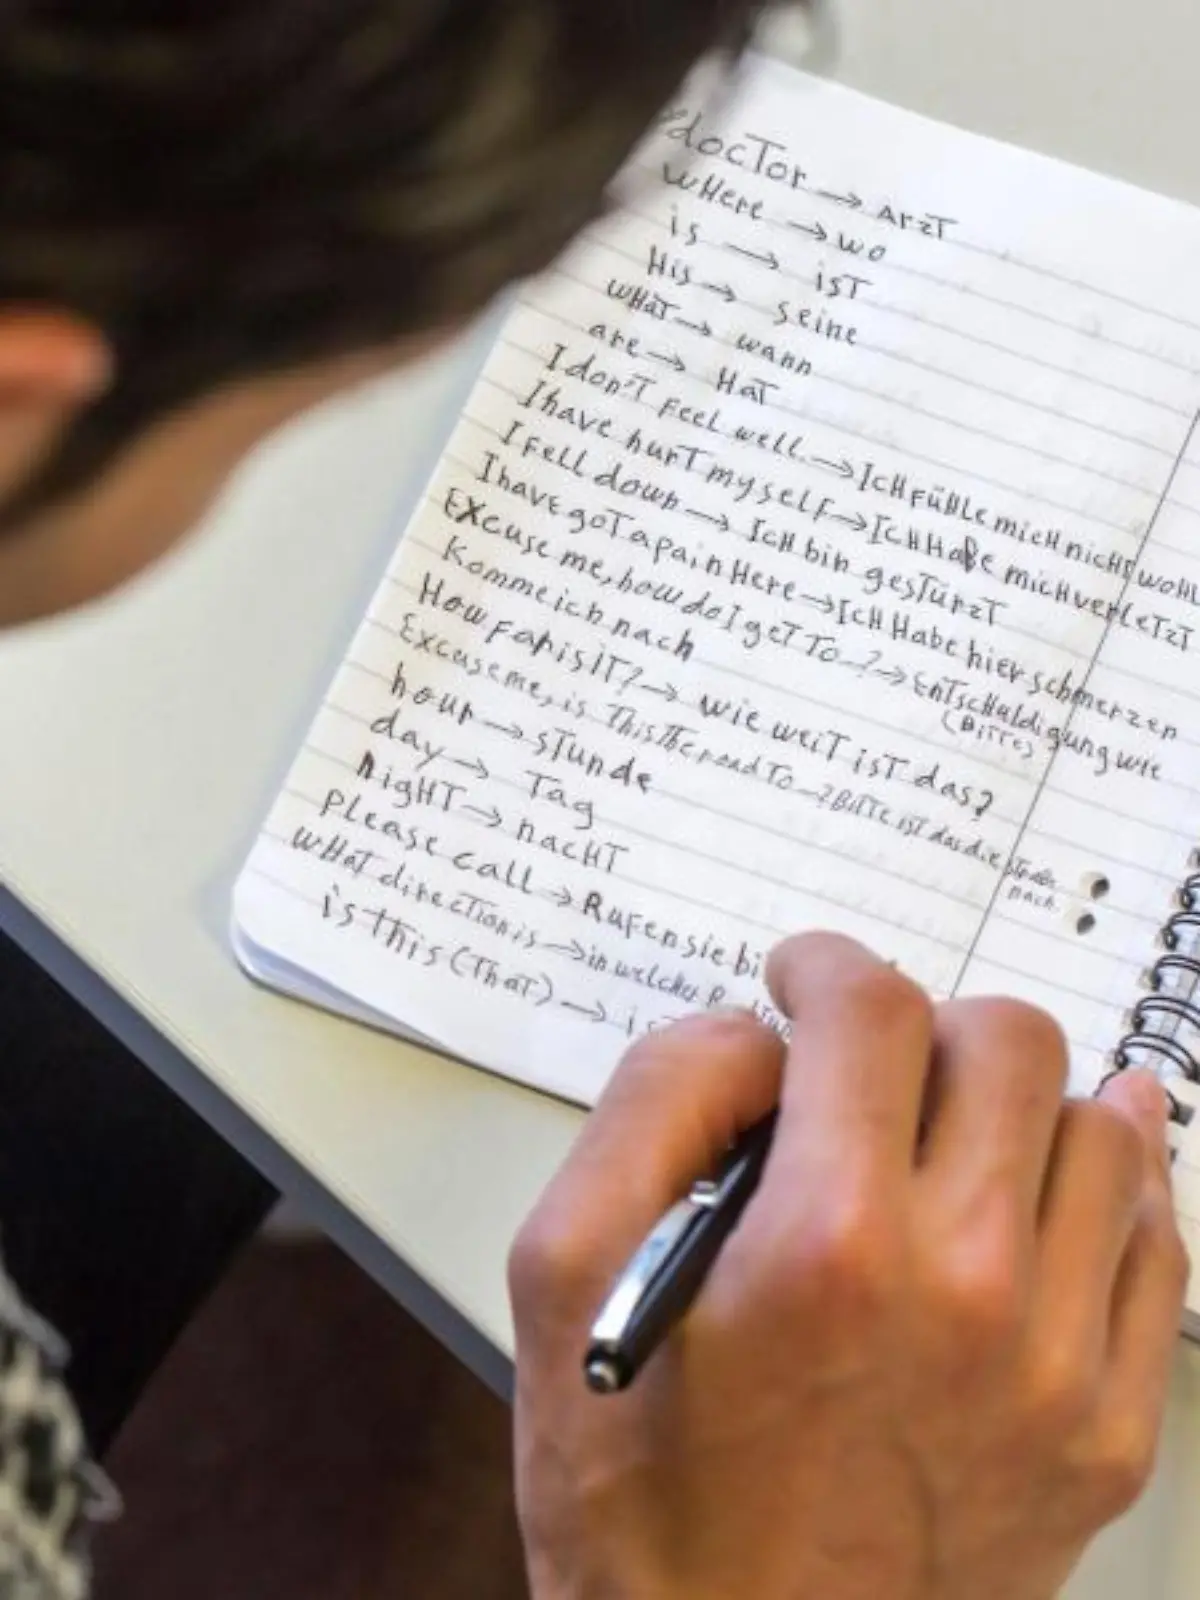 docTor → ArzT
wHere → wo
is → isT
His → seine
wHaT → wann
are → HaT
I don'T feel well. → IcH füHle micH nicHT woHl
I have hurT myself → IcH Habe micH verleTzT
I fell down → IcH bin gesTürzT
I have goT a pain Here → IcH Habe hier schmerzen
Excuse me, how do I geT To - ? → EnTscHuldigung wie
(BiTTe)
Komme ich nach
How far is iT? → wie weiT isT das?
Excuse me, is This The road To - ? BiTTe ist das die
nach
hour → sTunde
day → Tag
nigHT → nacHT
please call → Rufen sie
wHaT direcTion is → in welcher
is this (ThaT) →